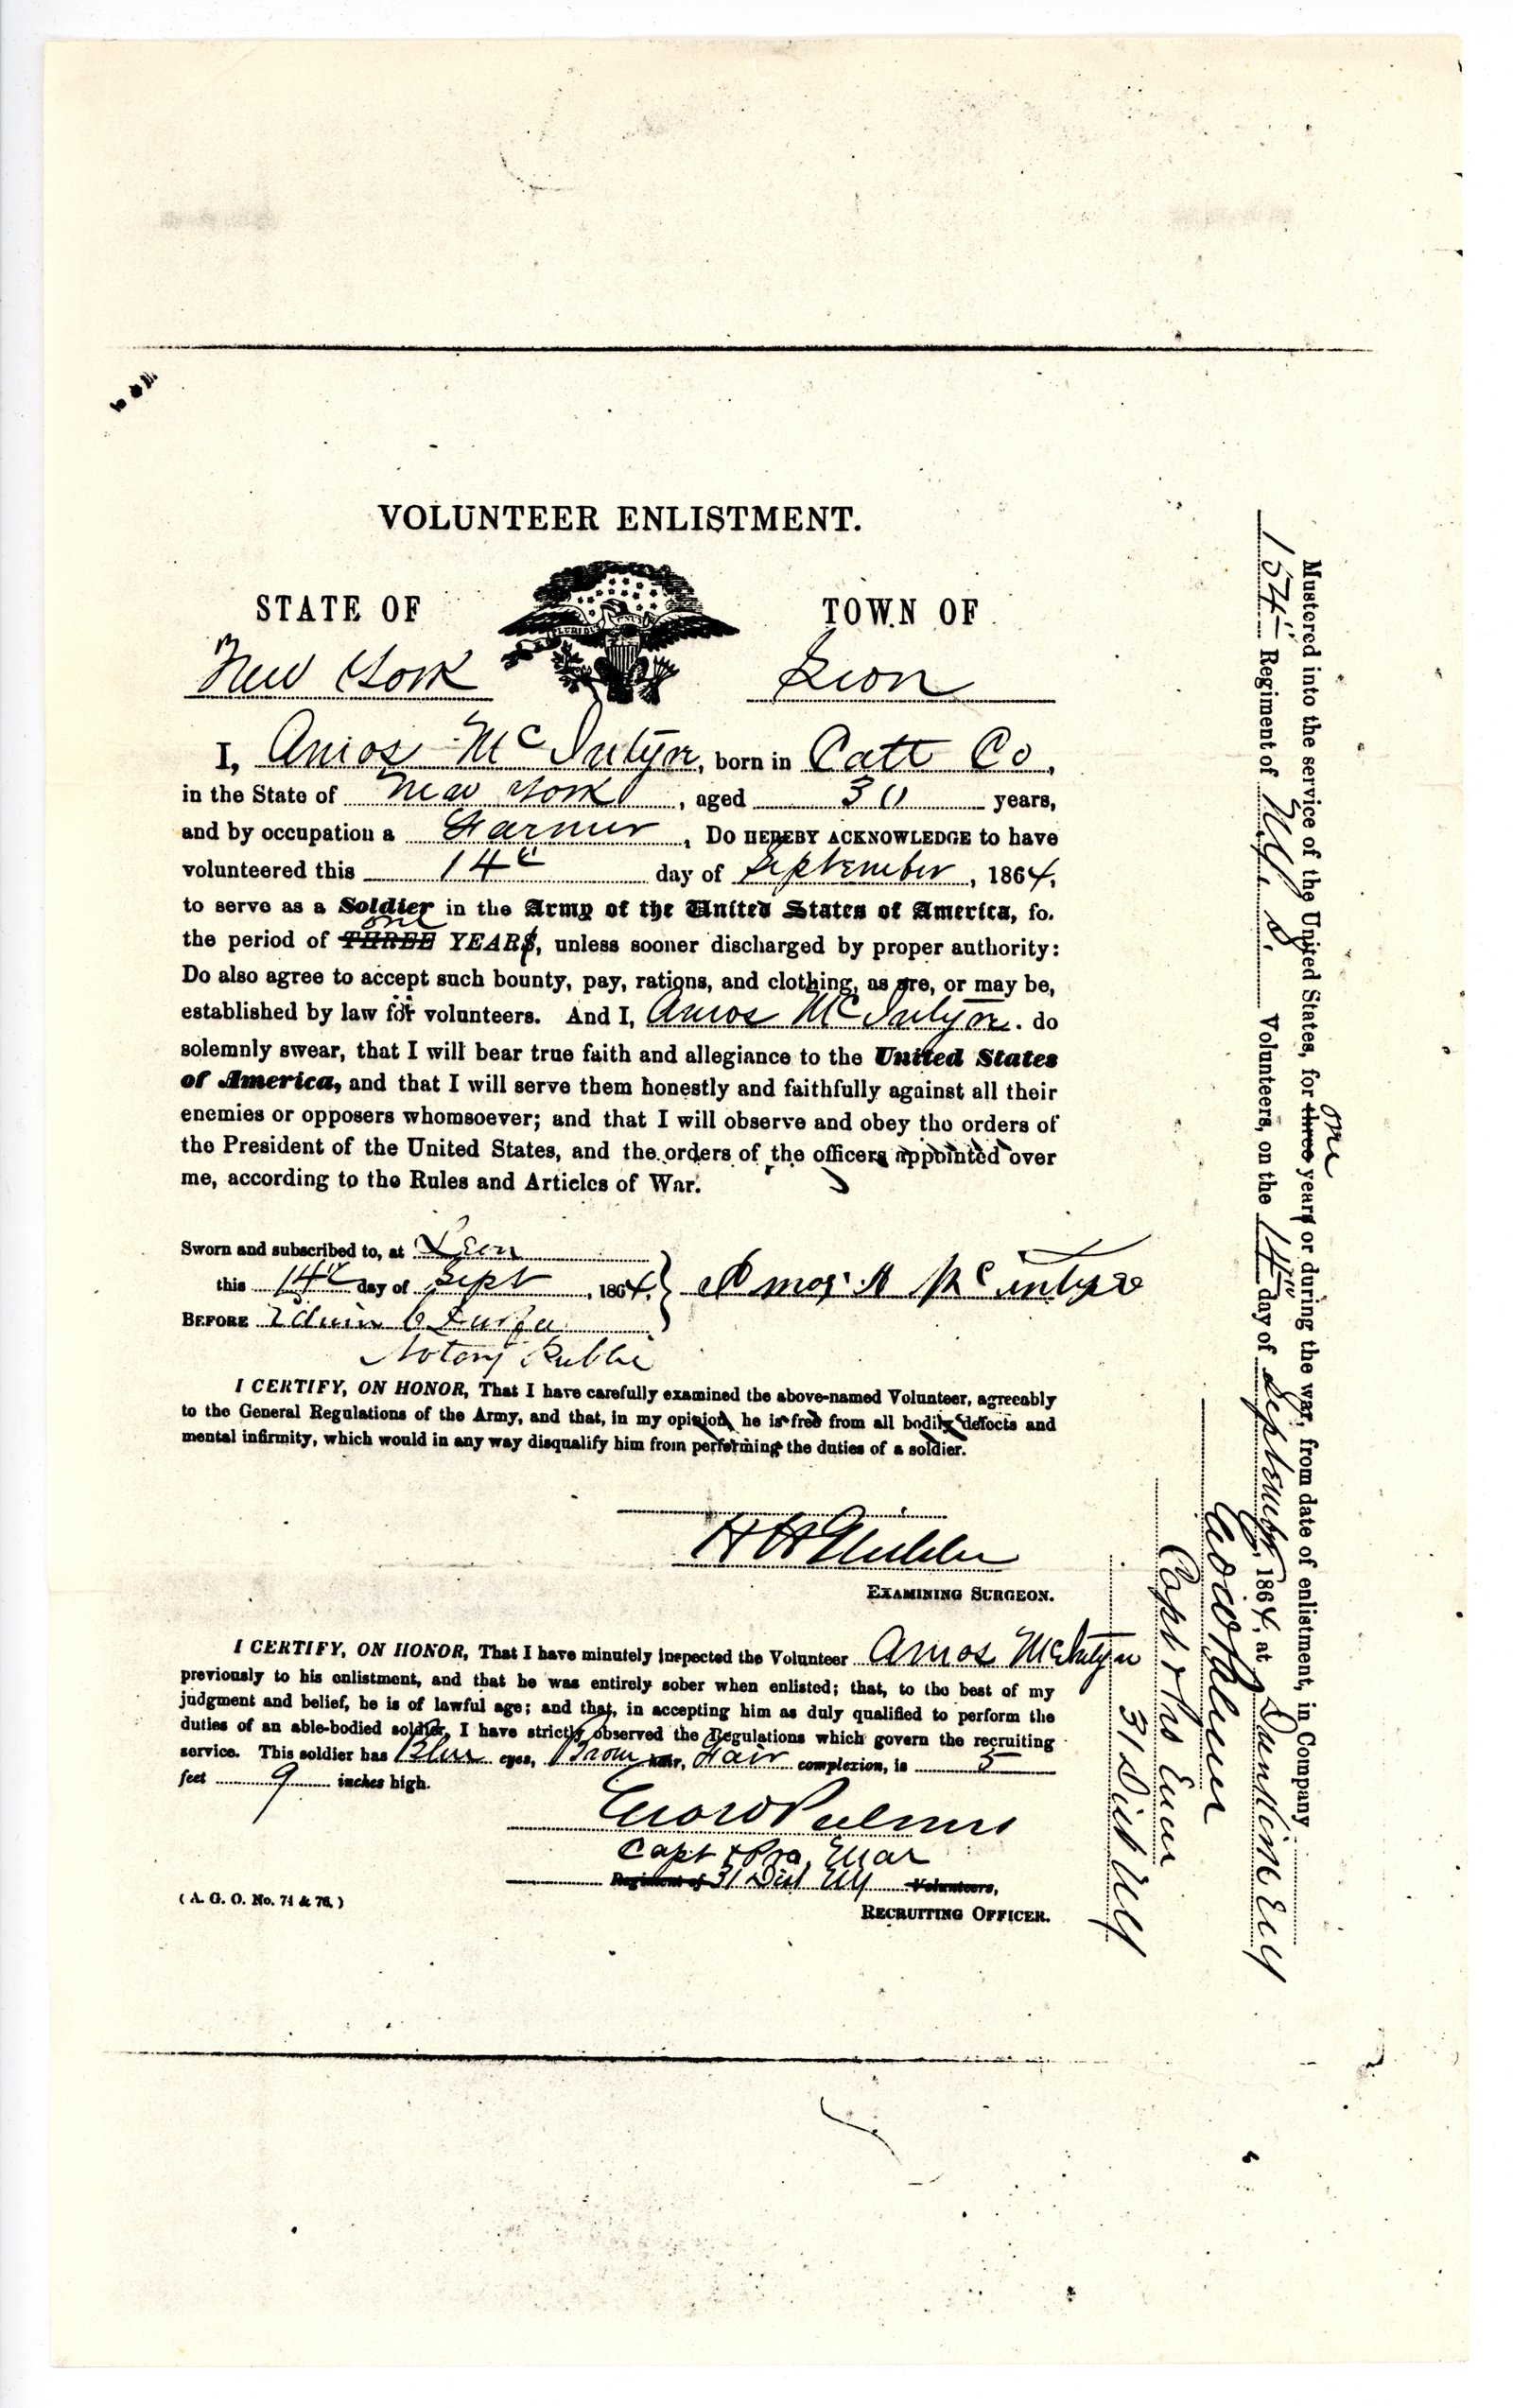 VOLUNTEER ENLISTMENT.
STATE OF TOWN OF
New York Leon
E PLURIBUS UNUM
I, Amos McIntyre, born in Catt Co,
in the State of New York, aged 30 years,
and by occupation a Farmer, Do HEREBY ACKNOWLEDGE to have
volunteered this 14th day of September, 1864,
to serve as a Soldier in the Army of the United States of America, fo.
one
the period of THREE YEARS, unless sooner discharged by proper authority:
Do also agree to accept such bounty, pay, rations, and clothing, as are, or may be,
established by law for volunteers. And I, Amos McIntyre. do
solemnly swear, that I will bear true faith and allegiance to the United States
of America, and that I will serve them honestly and faithfully against all their
enemies or opposers whomsoever; and that I will observe and obey the orders of
the President of the United States, and the orders of the officers appointed over
me, according to the Rules and Articles of War.
Sworn and subscribed to, at Leon
this 14th day of Sept, 1864. Amos A McIntyre
BEFORE Edwin
Notary Public
I CERTIFY, ON HONOR, That I have carefully examined the above-named Volunteer, agreeably
to the General Regulations of the Army, and that, in my opinion, he is free from all bodily defects and
mental infirmity, which would in any way disqualify him from performing the duties of a soldier.
H H
EXAMINING SURGEON.
I CERTIFY, ON HONOR, That I have minutely inspected the Volunteer Amos McIntyre
previously to his enlistment, and that he was entirely sober when enlisted; that, to the best of my
judgment and belief, he is of lawful age; and that, in accepting him as duly qualified to perform the
duties of an able-bodied soldier, I have strictly observed the Regulations which govern the recruiting
service. This soldier has Blue eyes, Brown hair, Fair complexion, is 5
feet 9 inches high.
Geo W Palmer
Capt & Pro. Mar
Regiment of 31 Dist NY Volunteers,
(A. G. O. No. 74 & 76.)
RECRUITING OFFICER.
one
Mustered into the service of the United States, for three years or during the war, from date of enlistment, in Company
154th Regiment of N.Y. S. Volunteers, on the 14th day of September, 1864, at Dunkirk NY
Geo W Palmer
Capt & Pro Mar
31 Dist NY